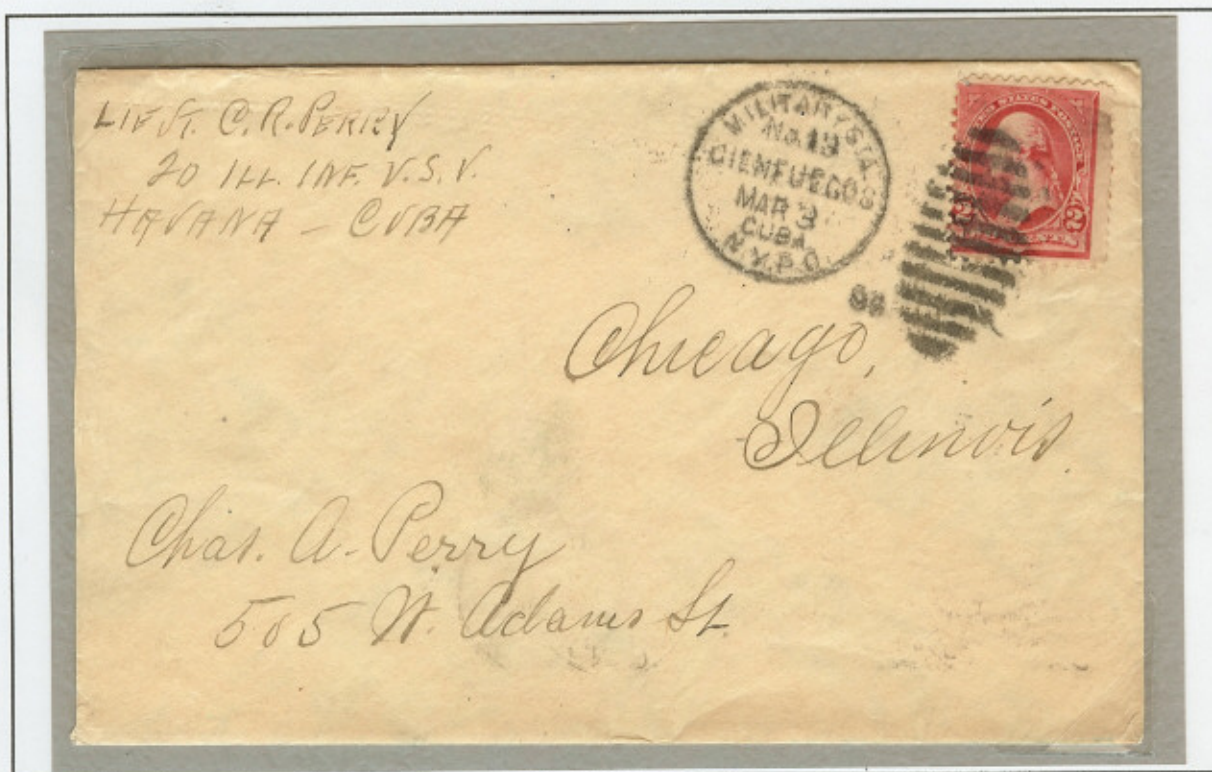 LIEUT. C. R. PERRY
20 ILL. INF. U.S.V.
HAVANA - CUBA
MILITARY STA.
No. 13
CIENFUEGOS
MAR 3
CUBA
N.Y.P.O.
UNITED STATES POSTAGE
2 CENTS 2
Chicago,
Illinois.
Chas. A. Perry
505 W. Adams St.